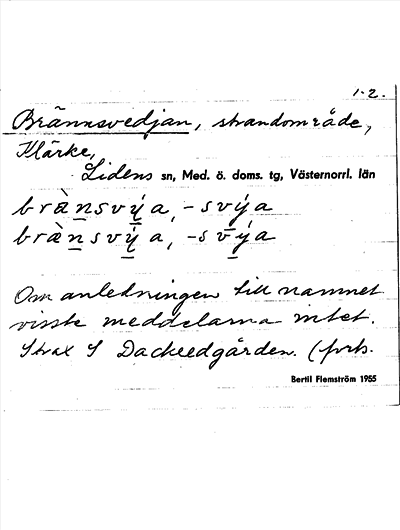 1-2.
Brännsvedjan, strandområde,
Klärke,
Lidens sn, Med. ö. doms. tg, Västernorrl. län
brànsvý̄a, -svýa
brànsvýa, -svýa
Om anledningen till namnet
visste meddelarna intet.
Strax S Dackeedgården. (forts.
Bertil Flemström 1955